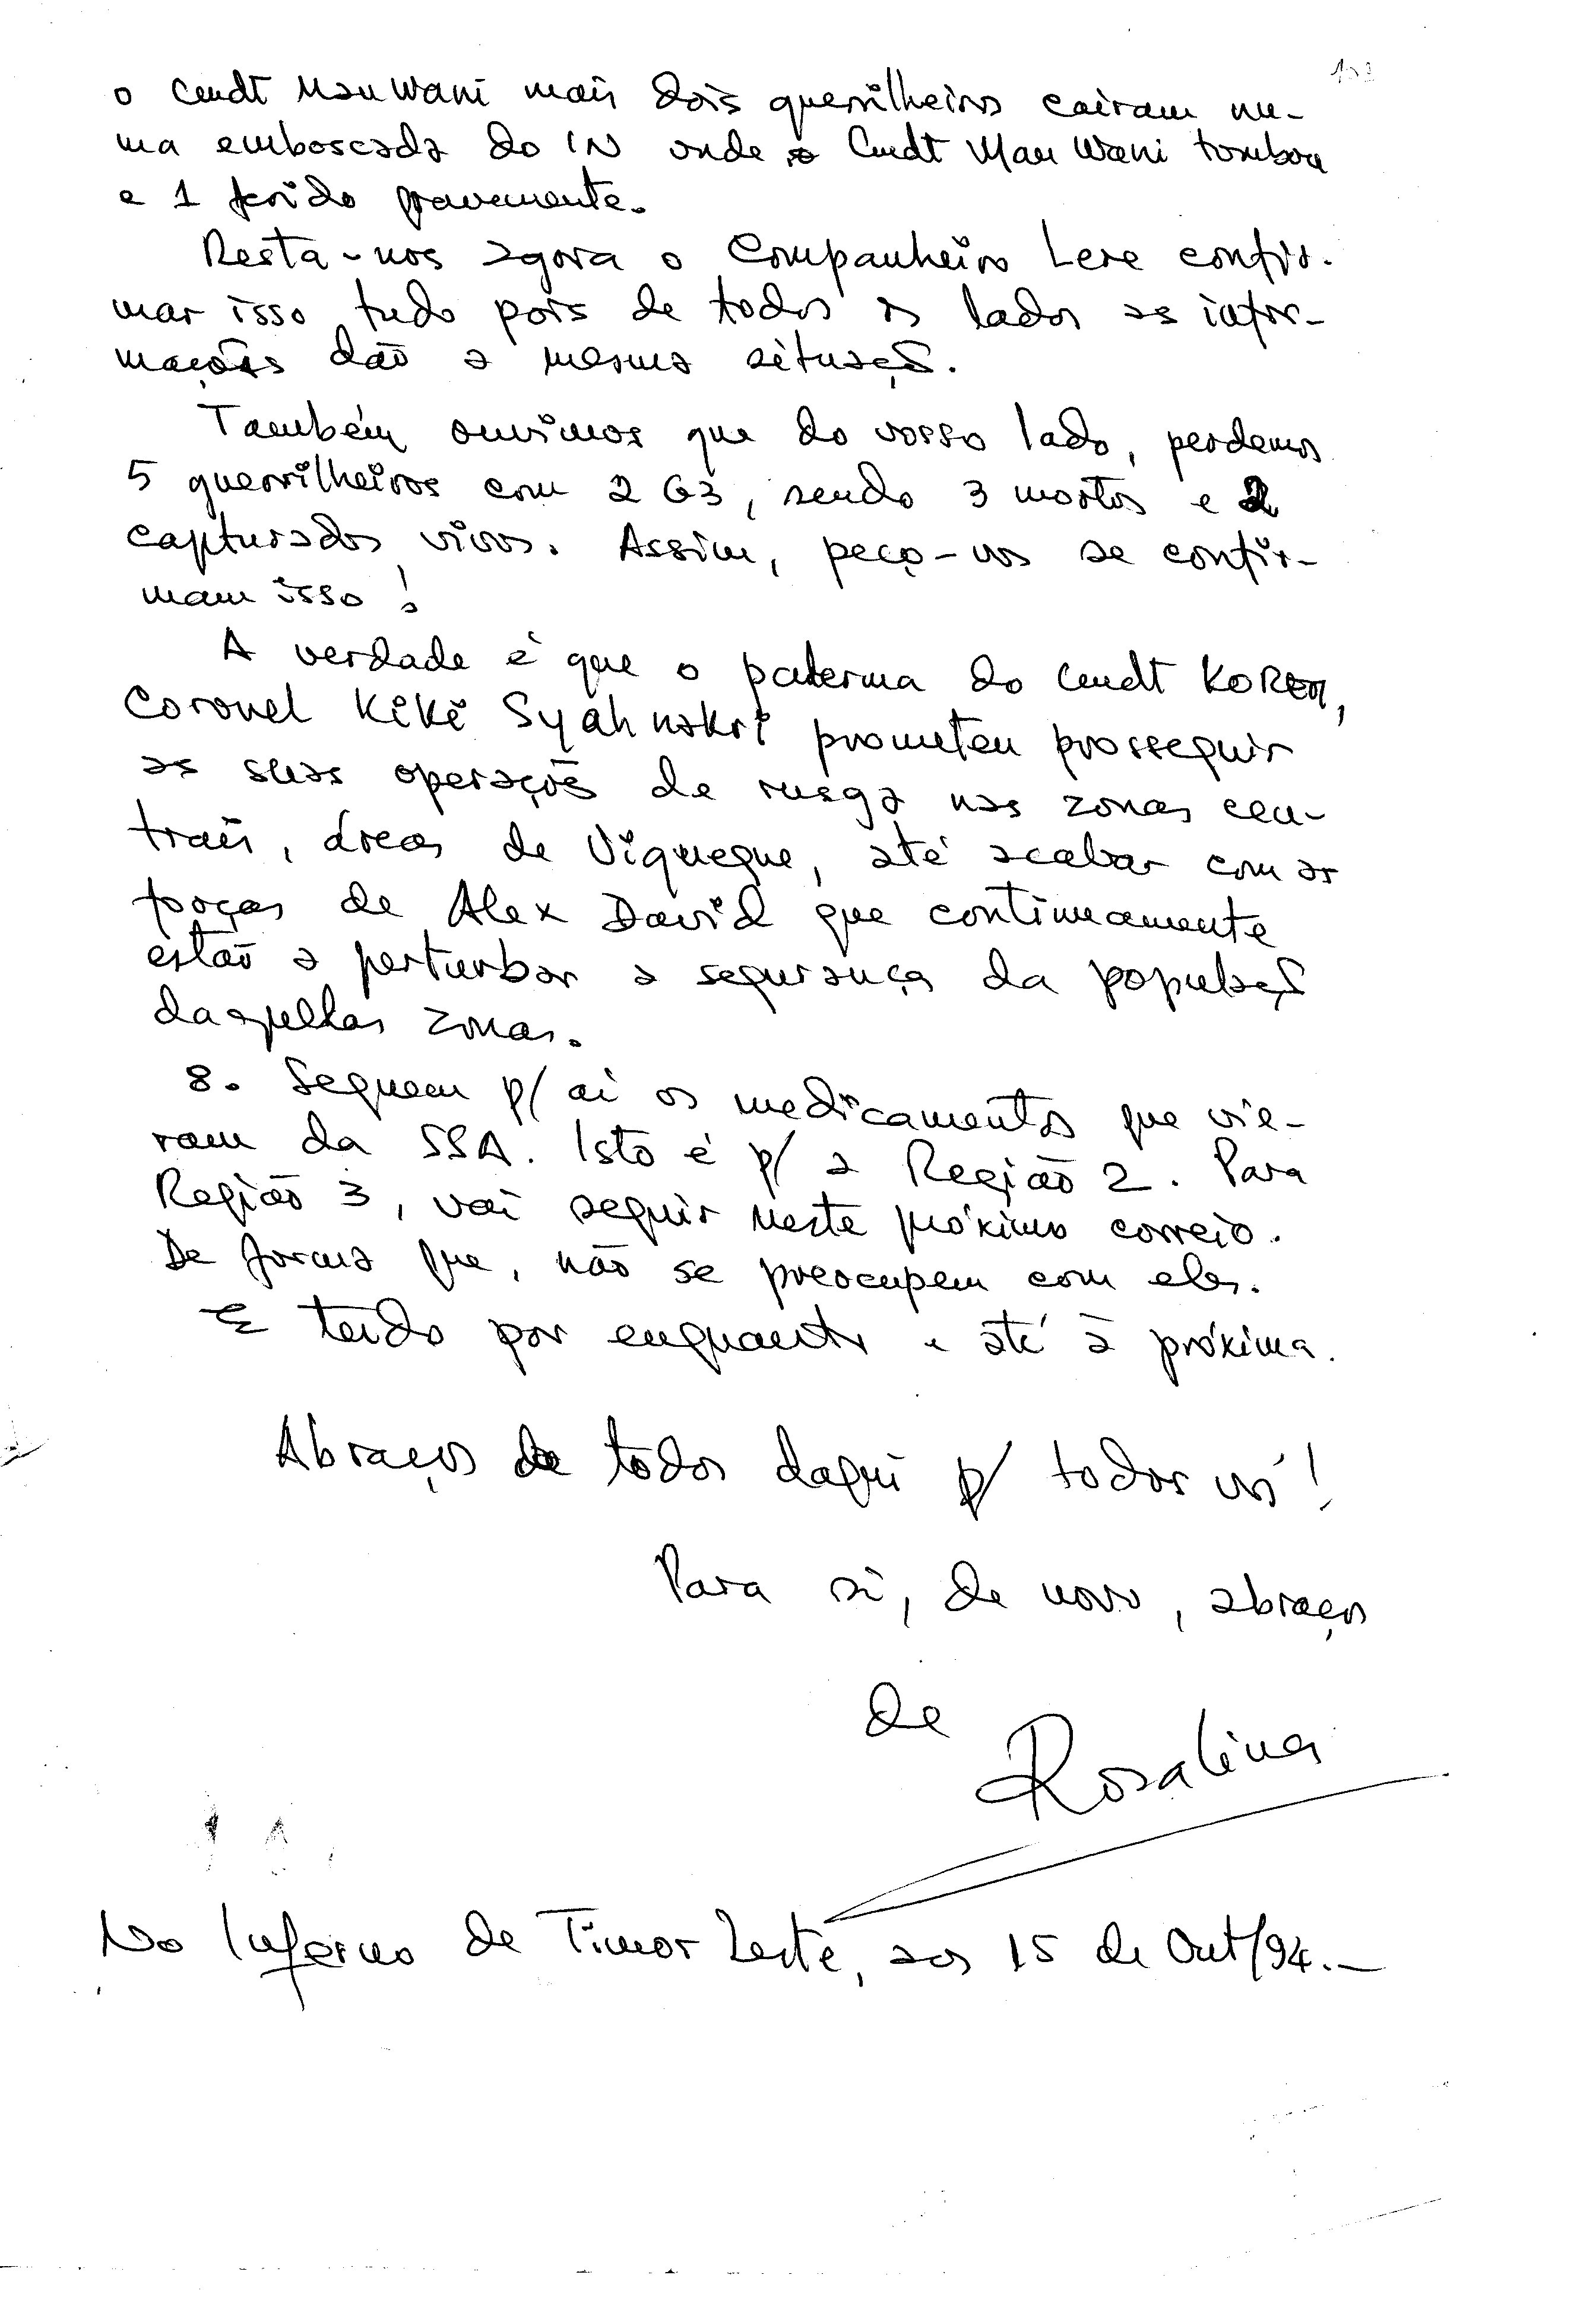 o Cmdt Mau Wani mais dois guerrilheiros cairam nu-
ma emboscada do IN onde o Cmdt Mau Wani tombou
e 1 ferido gravemente.
Resta-nos agora o Companheiro Lere confir-
mar isso tudo pois de todos os lados as infor-
mações dão a mesma situaçã.
Também ouvimos que do vosso lado, perdemos
5 guerrilheiros com 2 G3, sendo 3 mortos e 2
capturados vivos. Assim, peço-vos se confir-
mam isso!
A verdade é que o do Cmdt KOREM,
Coronel Kiki Syahnakri prometeu prosseguir
as suas operações de rusga nas zonas cen-
trais, áreas de Viqueque, até acabar com as
forças de Alex David que continuamente
estão a perturbar a segurança da populaçã
daquelas zonas.
8. Seguem p/ aí os medicamentos que vie-
ram da SSA. Isto é p/ a Região 2. Para
Região 3, vai seguir neste próximo correio.
De forma que, não se preocupem com eles.
E tudo por enquanto e até à próxima.
Abraços de todos daqui p/ todos vós!
Para si, de novo, abraços
de
Rosalina
No Inferno de Timor Leste, aos 15 de Out/94.—